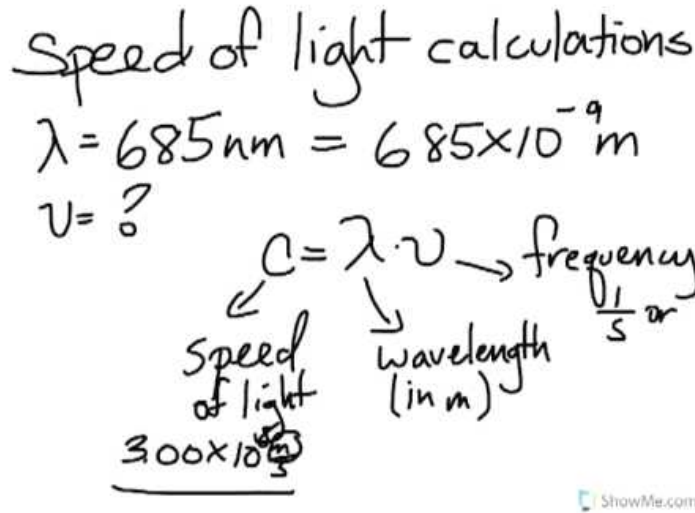 Speed of light calculations
λ = 685nm = 685×10⁻⁹m
ν = ?
C = λ·ν → frequency
1/s or
speed of light
wavelength (in m)
3.00×10⁸ m/s
ShowMe.com